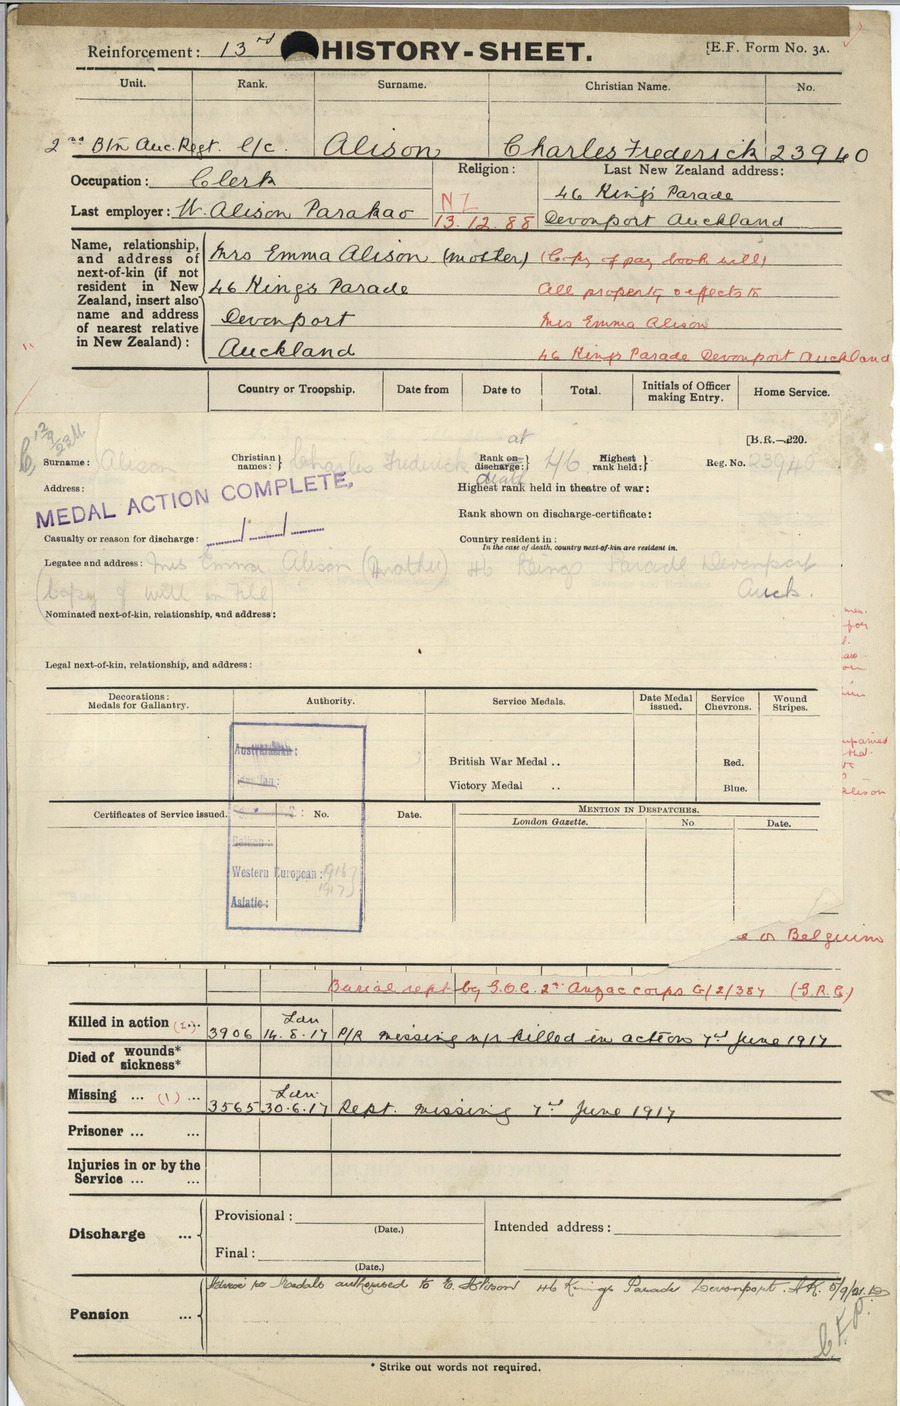 Reinforcement: 13rd HISTORY-SHEET. [E.F. Form No. 3A.
Unit. Rank. Surname. Christian Name. No.
2nd Btn Auc. Regt. l/c. Alison Charles Frederick 23940
Occupation: Clerk Religion: Last New Zealand address:
46 King's Parade
Last employer: W. Alison Parakao NZ 13.12.88 Devonport Auckland
Name, relationship, and address of next-of-kin (if not resident in New Zealand, insert also name and address of nearest relative in New Zealand):
Mrs Emma Alison (mother) (Copy of pay book will)
46 King's Parade All property & effects to
Devonport Mrs Emma Alison
Auckland 46 Kings Parade Devonport Auckland
Country or Troopship. Date from Date to Total. Initials of Officer making Entry. Home Service.
[B.R.—220.
12/9/22
at
Surname: Alison Christian names: Charles Frederick Rank on discharge: 46 Highest rank held: Reg. No. 23940
death
Address: Highest rank held in theatre of war:
MEDAL ACTION COMPLETE.
Rank shown on discharge-certificate:
Casualty or reason for discharge: Country resident in:
In the case of death, country next-of-kin are resident in.
Legatee and address: Mrs Emma Alison (Mother) 46 Kings Parade Devonport
(Copy of will on File) Auck.
Nominated next-of-kin, relationship, and address:
Legal next-of-kin, relationship, and address:
Decorations: Medals for Gallantry. Authority. Service Medals. Date Medal issued. Service Chevrons. Wound Stripes.
Australasian:
British War Medal .. Red.
Victory Medal .. Blue.
Certificates of Service issued. No. Date. MENTION IN DESPATCHES.
London Gazette. No. Date.
Western European: 1916
1917
Asiatic:
or Belguim
Burial rept by G.O.C. 2nd Anzac corps G/2/387 (G.R.E)
Killed in action (2)... 3906 Ldn 14.8.17 P/R missing n/r killed in action 7th June 1917
Died of wounds* sickness*
Missing ... (1) ... 3565 Ldn 30.6.17 Rept. missing 7th June 1917
Prisoner ... ...
Injuries in or by the Service ... ...
Discharge ... Provisional: (Date.) Intended address:
Final: (Date.)
Pension ... Medals authorised to E. Alison 46 Kings Parade Devonport. AK. 5/9/21
C.F.P.
* Strike out words not required.